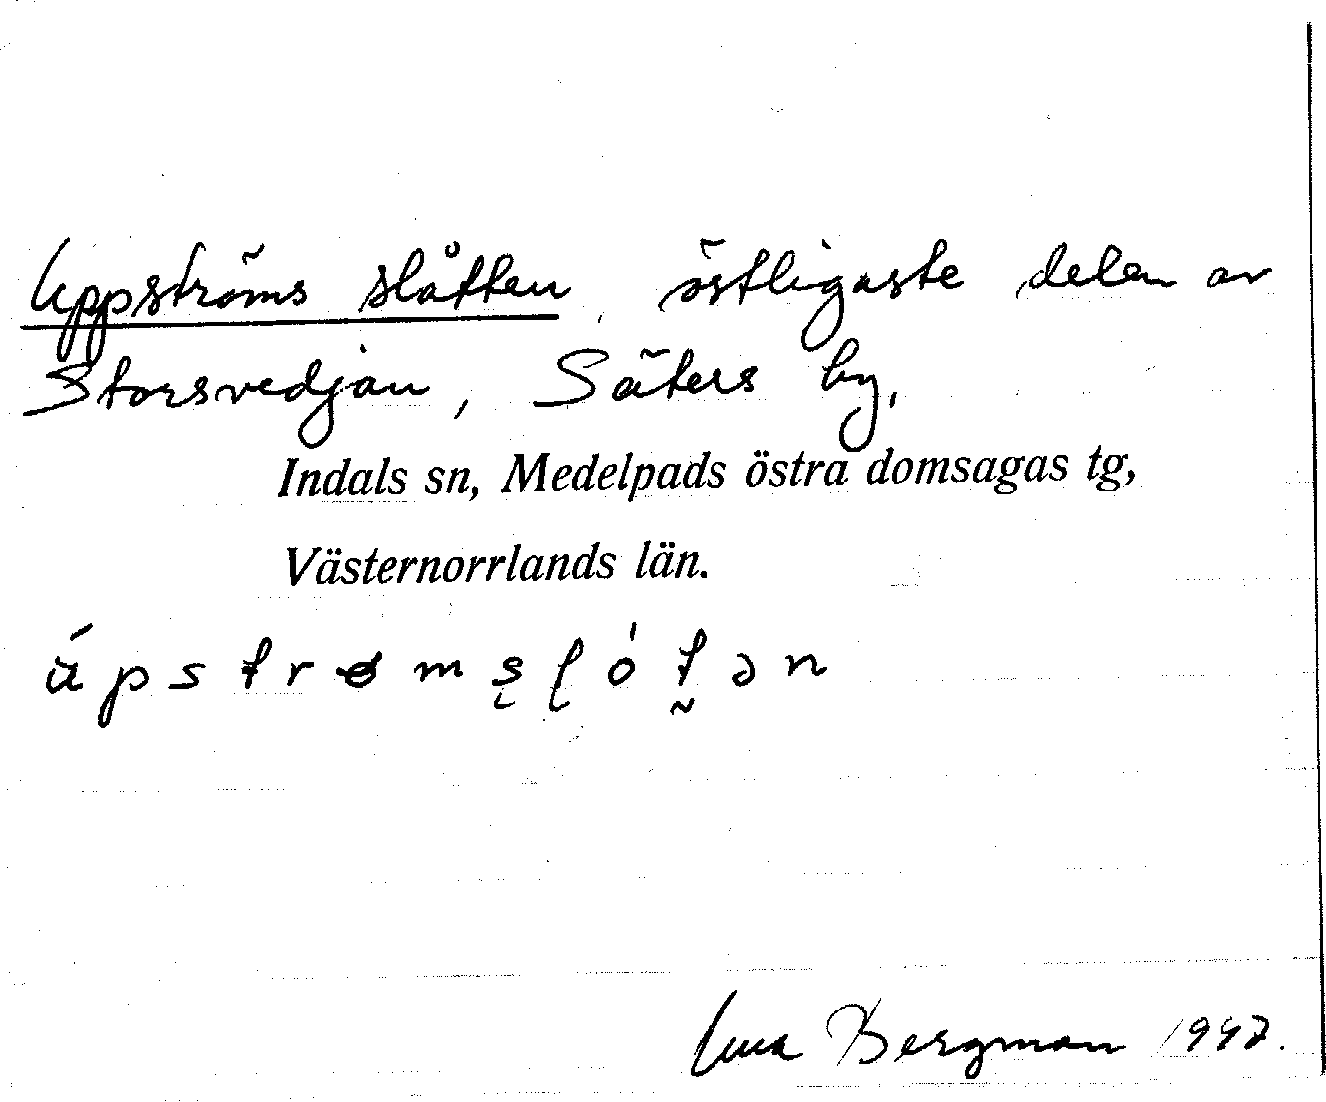 Uppströms slåtten, östligaste delen av
Storsvedjan, Säters by,
Indals sn, Medelpads östra domsagas tg,
Västernorrlands län.
Bergman